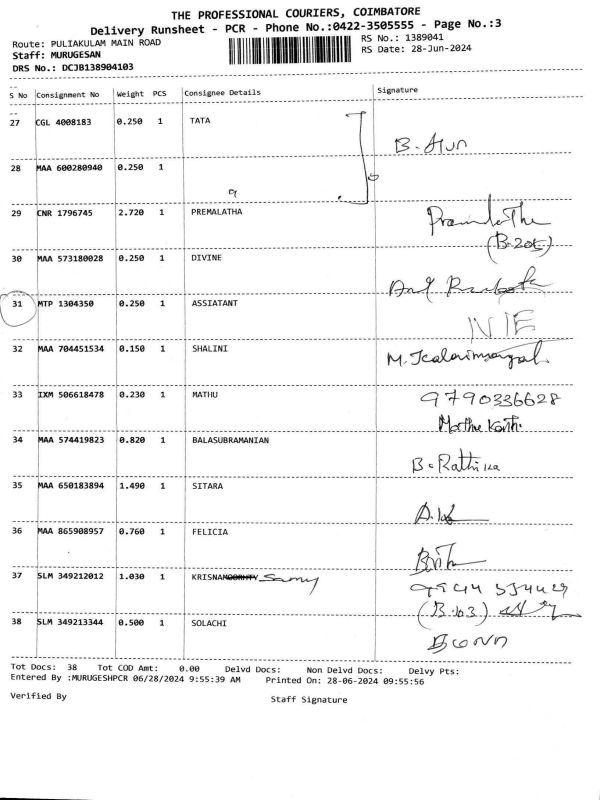 THE PROFESSIONAL COURIERS, COIMBATORE
Delivery Runsheet - PCR - Phone No.:0422-3505555 - Page No.:3
Route: PULIAKULAM MAIN ROAD RS No.: 1389041
Staff: MURUGESAN RS Date: 28-Jun-2024
DRS No.: DCJB138904103
S No Consignment No Weight PCS Consignee Details Signature
27 CGL 4008183 0.250 1 TATA
B. Arun
28 MAA 600280940 0.250 1
29 CNR 1796745 2.720 1 PREMALATHA
(B-205)
30 MAA 573180028 0.250 1 DIVINE
31 MTP 1304350 0.250 1 ASSIATANT
N/E
32 MAA 704451534 0.150 1 SHALINI
33 IXM 506618478 0.230 1 MATHU 9790336628
34 MAA 574419823 0.820 1 BALASUBRAMANIAN
B. Rathika
35 MAA 650183894 1.490 1 SITARA
36 MAA 865908957 0.760 1 FELICIA
37 SLM 349212012 1.030 1 KRISNAMOORHTY Samy
(B.103)
38 SLM 349213344 0.500 1 SOLACHI
Tot Docs: 38 Tot COD Amt: 0.00 Delvd Docs: Non Delvd Docs: Delvy Pts:
Entered By :MURUGESHPCR 06/28/2024 9:55:39 AM Printed On: 28-06-2024 09:55:56
Verified By Staff Signature